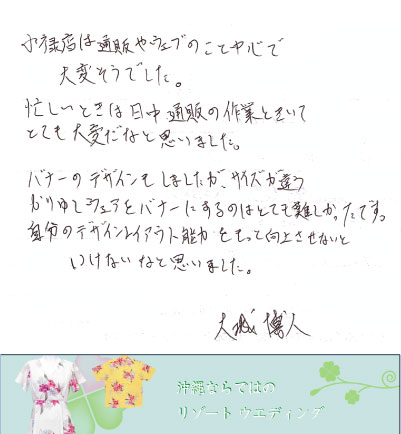 小禄店は通販やウェブのこと中心で
大変そうでした。
忙しいときは日中通販の作業ときいて
とても大変だなと思いました。
バナーのデザインもしましたが、サイズが違う
かりゆしウェアをバナーにするのはとても難しかったです。
自分のデザインレイアウト能力をもっと向上させないと
いけないなと思いました。
大城 博人
沖縄ならではの
リゾート ウエディング